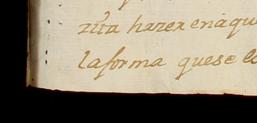 zita hazer en aqu
la forma que se co